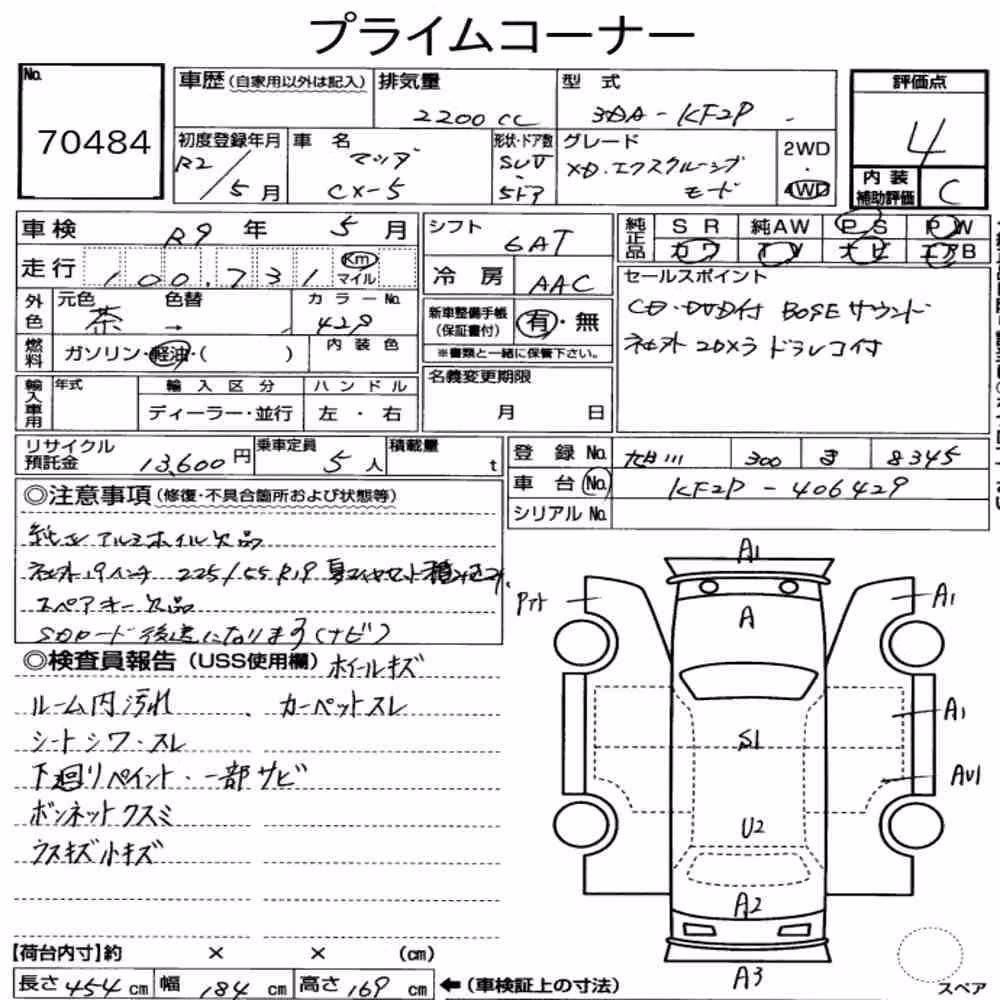 プライムコーナー
No.
70484
車歴(自家用以外は記入)
排気量
2200 CC
型 式
3DA-KF2P
評価点
4
内装補助評価
C
初度登録年月
R2/5月
車 名
マツダ
CX-5
形状・ドア数
SUV
5ドア
グレード
XD.エクスクルーシブ
モード
2WD
・
4WD
車検
R9 年 5 月
走行
100,731
Km
マイル
シフト
6AT
冷 房
AAC
純正品
SR 純AW PS PW
カワ TV ナビ エアB
外色
元色 色替 カラーNo.
茶 → 42S
燃料
ガソリン・軽油・( )
内装色
新車整備手帳
(保証書付)
有・無
※書類と一緒に保管下さい。
セールスポイント
CD・DVD付 BOSEサウンド
社外2Dメラ ドラレコ付
輸入車用
年式
輸入区分
ディーラー・並行
ハンドル
左・右
名義変更期限
月 日
リサイクル預託金
13,600円
乗車定員
5人
積載量
t
登 録 No.
旭川 300 ま 8345
車 台 No.
KF2P-406429
シリアルNo.
◎注意事項(修復・不具合箇所および状態等)
純正アルミホイル欠品
社外19インチ 225/55R19 夏タイヤセット積み込み.
スペアキー欠品
SDカード後送になります(ナビ)
◎検査員報告(USS使用欄) ホイールキズ
ルーム内汚れ、カーペットスレ
シートシワ・スレ
下廻りペイント・一部サビ
ボンネットクスミ
ウスキズ小キズ
A1
Pアト
A
A1
S1
A1
AU1
U2
A2
A3
スペア
【荷台内寸】約 × × (cm)
長さ 454 cm 幅 184 cm 高さ 169 cm ←(車検証上の寸法)